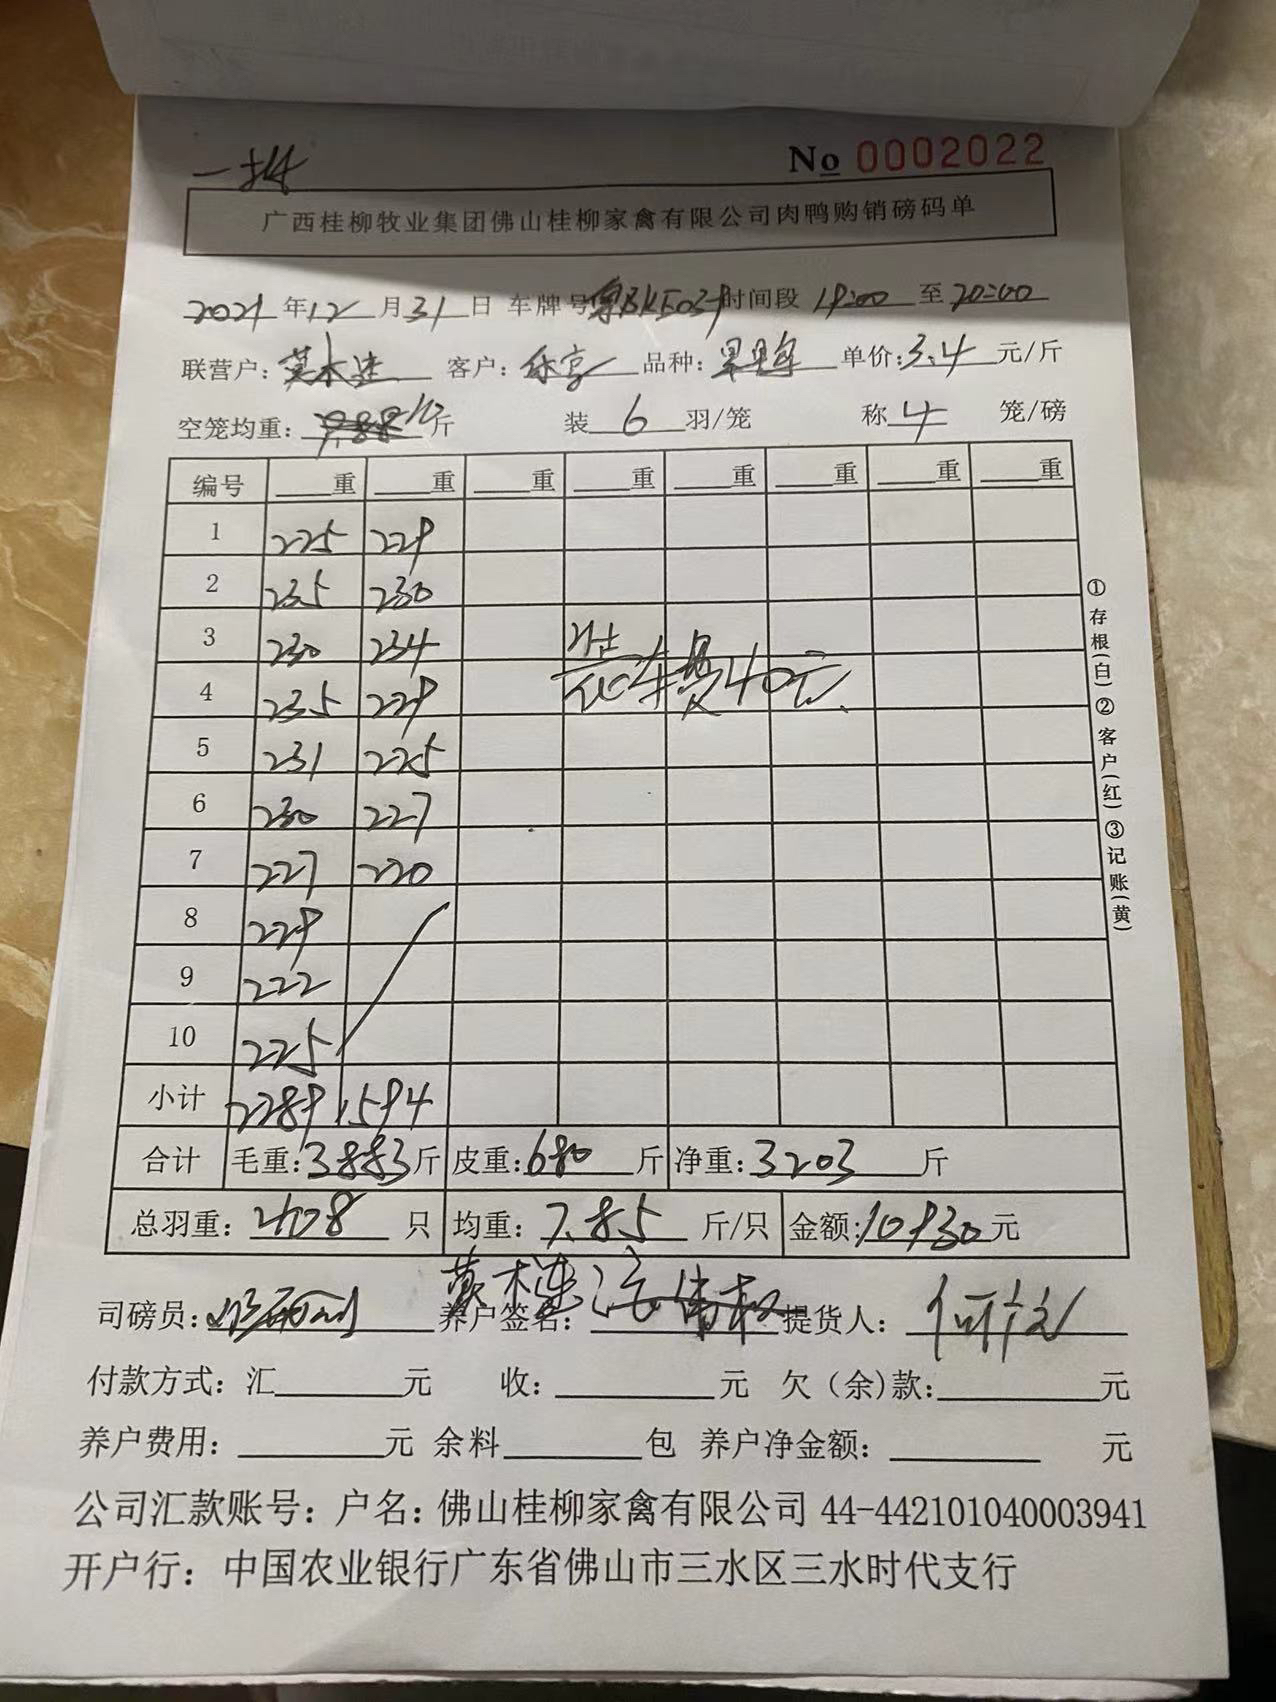 一批
No 0002022
广西桂柳牧业集团佛山桂柳家禽有限公司肉鸭购销磅码单
2021年12月31日 车牌号粤BK5039时间段 19:00至20:00
联营户:莫木连 客户: 品种: 单价:3.4元/斤
空笼均重:10斤 装6羽/笼 称4笼/磅
编号 重 重 重 重 重 重 重 重
1 225 229
2 235 230
3 230 234
4 235 229
装车费40元
5 231 225
6 230 227
7 227 220
8 229
9 222
10 225
小计 2289 1594
合计 毛重:3883斤 皮重:680斤 净重:3203斤
总羽重:408只 均重:7.85斤/只 金额:10930元
司磅员: 养户签名:莫木连 提货人:
付款方式:汇元 收:元 欠(余)款:元
养户费用:元 余料包 养户净金额:元
公司汇款账号:户名:佛山桂柳家禽有限公司 44-442101040003941
开户行:中国农业银行广东省佛山市三水区三水时代支行
①存根(白)②客户(红)③记账(黄)